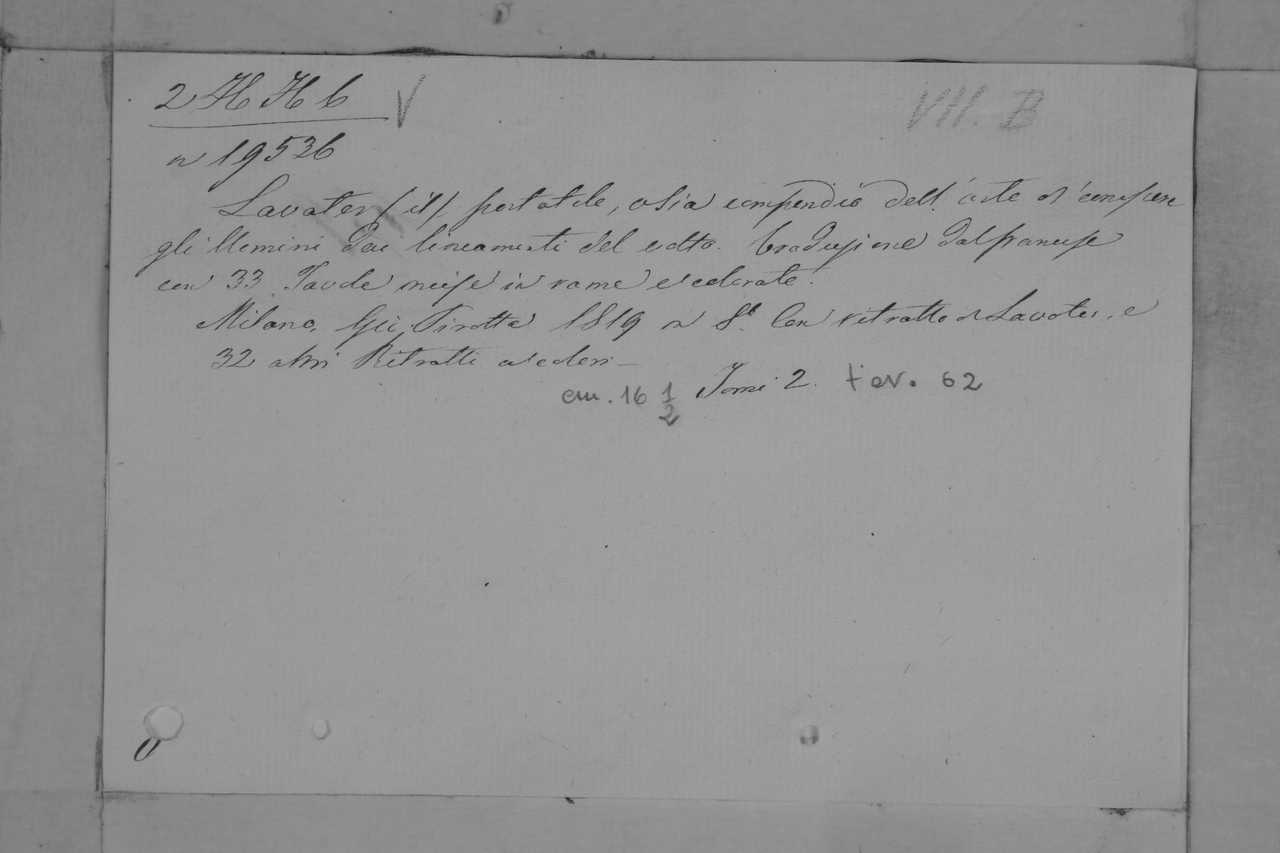 2 H H 6 V VII. B
n 19536
Lavater (il) portatile, ossia compendio dell'arte di conoscere
gli Uomini dai lineamenti del volto. Traduzione dal francese
con 33 Tavole incise in rame e colorate.
Milano, Gio, Pirotta 1819 in 8.° Con ritratto di Lavater, e
32 altri Ritratti a colori
cm. 16 1/2 Tomi 2. tav. 62